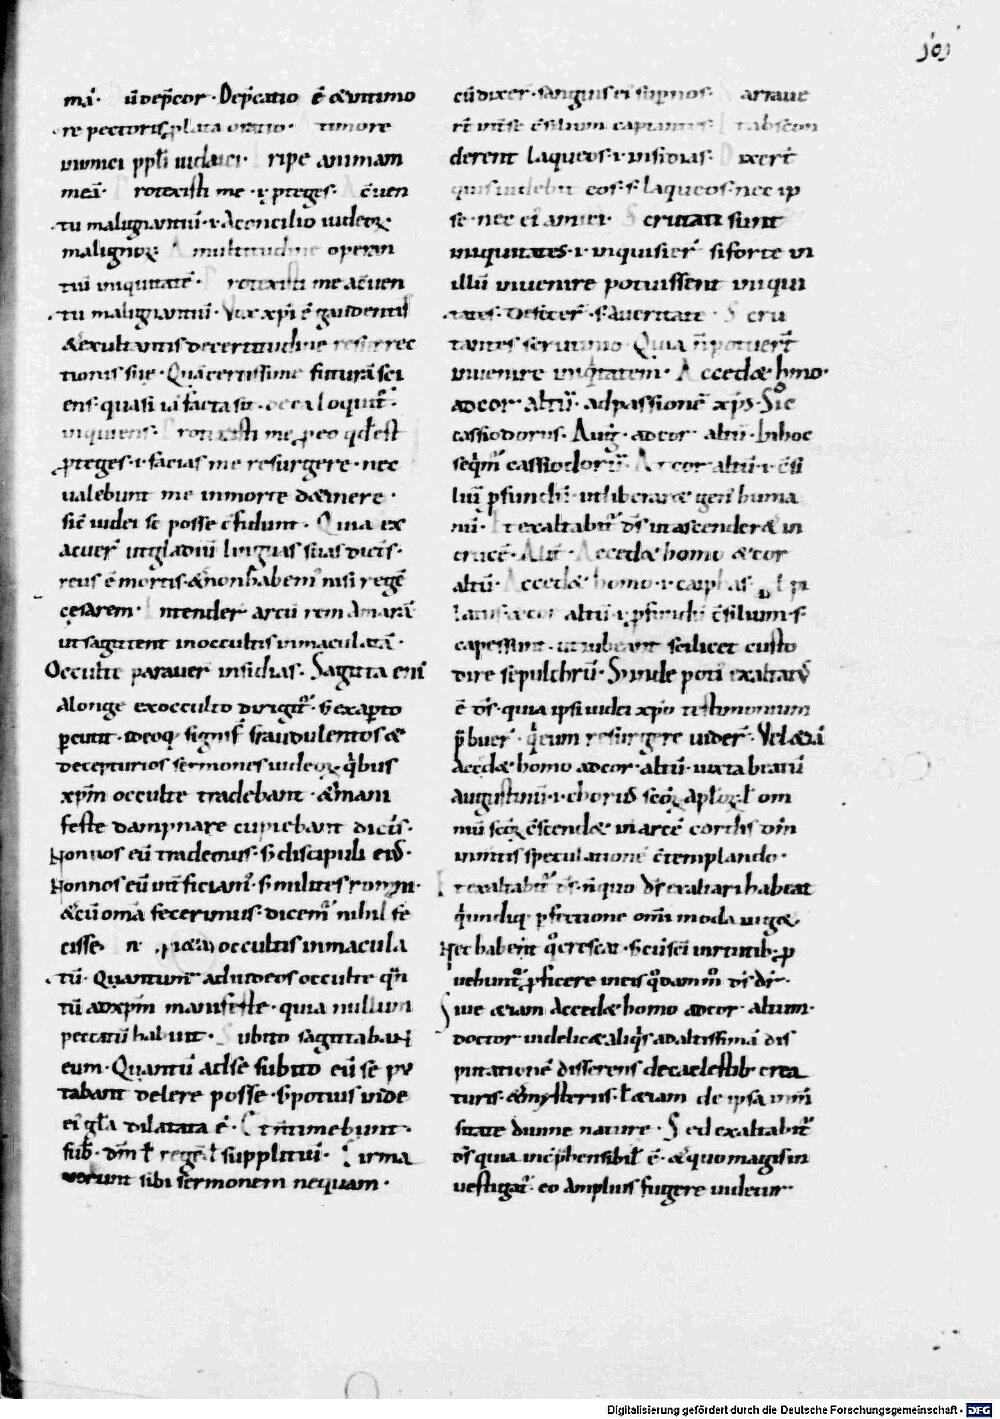 101
mā· ū dep̄cor · Dep̄catio ē & intimo
re pectoris plata oratio · timore
inimici ppl̄i iudaici · ripe animam
meā · rotexisti me · i · pteges · c̄uen
tu malignantiū · i · A concilio iudeoꝝ
malignoꝝ multitudine operan
tiū iniquitatē · rotexisti me a c̄uen
tu malignantiū · Vox xp̄i ē gaudentis
& exultantis de certitudine resurrec
tionis sue · Quā certissime futurā sci
ens · quasi iā facta sit · de ea loquit̄ ·
inquiens · rotexisti me p eo qd̄ est
pteges · i · facias me resurgere · nec
ualebunt me in morte detinere ·
sic̄ iudei se posse c̄fidunt · Quia ex
acuer̄ ut gladiū linguas suas dicn̄s ·
reus ē mortis · & non habem̄ nisi regē
cesarem · Intender̄ arcū rem amarā
ut sagittent in occultis inmaculatā ·
Occulte parauer̄ insidias · Sagitta eni
a longe ex occulto dirigit̄ · s; ex aꝑto
ꝑcutit · ideoq; signif fraudulentos &
decepturios sermones iudeoꝝ q̄bus
xp̄m occulte tradebant · & mani
feste dampnare cupiebant dicn̄s ·
Non nos eū trademus · s; discipuli eius ·
Non nos eū int̄ficiam̄ · s; milites romani ·
& cū oīa fecerimus · dicem̄ nihil fe
cisse · in occultis inmacula
tū · Quantum ad iudeos occulte q̄n
tū ad xp̄m manifeste · quia nullum
peccatū habuit · Subito sagittabant
eum · Quantū ad se subito eū se pu
tabant delere posse · s; potius inde
ei gl̄a dilatata ē · Et n̄ timebunt ·
sub · dm̄ ł regē ł supplitiū · Firma
uerunt sibi sermonem nequam ·
cū dixer̄ · sanguis ei sup nos · arraue
rt̄ int̄ se c̄silium capiantes · t abscon
derent laqueos · i · insidias · Dixert̄
quis uidebit eos · s · laqueos · nec ip
se · nec ei amici · Scrutati sunt
iniquitates · i · inquisier̄ si forte in
illū inuenire potuissent iniqui
tates · Defecer̄ · s · a ueritate · Scru
tantes scrutinio · Quia n̄ potuert̄
inuenire iniq̄tatem · Accedæ hmo ·
ad cor altū · ad passionē xp̄s · Sic
cassiodorus · Aug · ad cor altū · In hoc
seq̄m̄ cassiodorū · Ad cor altū · i · c̄si
liū pfundū · ut liberaræ gen̄ huma
nū · t exaltabit̄ ds̄ in ascendere in
crucē · Alit̄ · Accedæ homo & cor
altū · Accedæ homo · i · caiphas · t pi
latus & cor altū · i · pfundū c̄silium · s ·
capessunt · ut iubeant scilicet custo
dire sepulchrū · S; inde poti exaltat̄
ē ds̄ · quia ipsi iudei xp̄o testimonium
p̄buer̄ · q̄ eum resurgere uider̄ · Vel etiā
Accedæ homo ad cor · altū · iuxta beatū
augustinū · i · chorus scōꝝ aplōꝝ · ł om
niū scōꝝ c̄scendæ in arcē cordis dm̄
in intis speculatione c̄templando ·
t exaltabit̄ ds̄ · n̄ quo ds̄ exaltari habeat
q̄ undiq; pfectione om̄i moda uigæ ·
Nec habent q̄ crescat · s; cū sc̄i in uirtutib; p
uehunt̄ · pficere in eis q̄dam m̄ ds̄ dr̄ ·
Siue etiam Accedæ homo ad cor · altum ·
doctor uidelicæ aliq̄s ad altissimā dis
putationē disserens de caelestib; crea
turis · & mysteriis · ł etiam de ipsa inm̄
sitate diuine nature · Sed exaltabit̄
ds̄ quia inc̄phensibil̄ ē · & quo magis in
uestigat̄ · eo amplius fugere uidetur ·
Digitalisierung gefördert durch die Deutsche Forschungsgemeinschaft - DFG